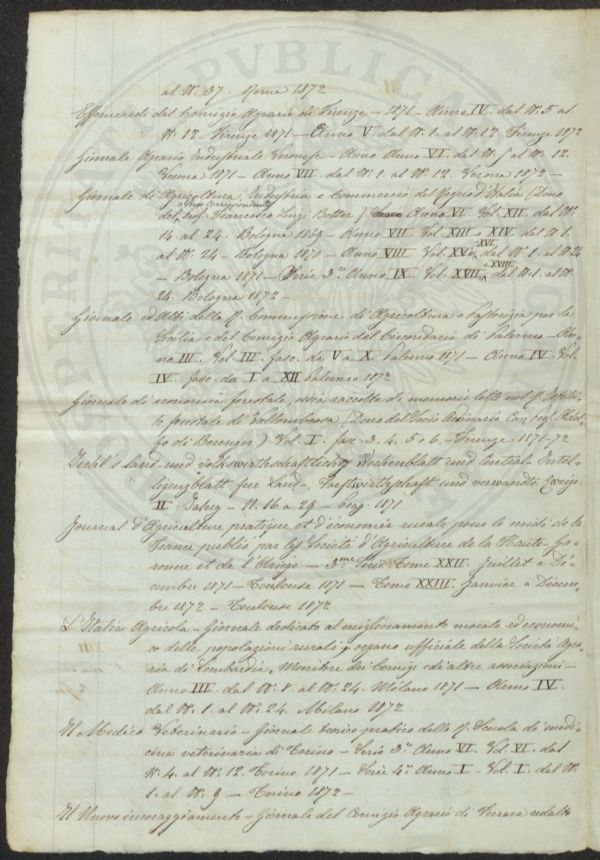 al N.° 37. Roma 1872
Effemeridi del Comizio Agrario di Firenze – 1871 – Anno IV. dal N. 5 al
N. 12 Firenze 1871 – Anno V dal N. 1. al N. 12 Firenze 1872
Giornale Agrario Industriale Veronese – Anno VI. dal N. 5 al N. 12.
Verona 1871 – Anno VII dal N. 1. al N. 12 Verona 1872 –
Giornale di Agricoltura, Industria e Commercio del Regno d'Italia (Dono
del Socio Corrispondente prof. Francesco Luigi Botter) Anno VI. Vol. XII. dal N.
14. al 24. Bologna 1869 – Anno VII. Vol. XIII e XIV dal N. 1
al N. 24 – Bologna 1870 – Anno VIII Vol. XV e XVI dal N. 1. al N. 24
– Bologna 1871 – Serie 3.a Anno IX. Vol. XVII e XVIII dal N. 1. al N.
24. Bologna 1872 –
Giornale ed Atti della R. Commissione di Agricoltura e Pastorizia per la
Sicilia e del Comizio Agrario del Circondario di Palermo – An-
no III. Vol. III. fasc. da V a X. Palermo 1871 – Anno IV. Vol.
IV. fasc. da I a XII Palermo 1872
Giornale di economia forestale, ossia raccolta di memorie lette nel R. Istitu-
to forestale di Vallombrosa (Dono del Socio Ordinario Cav. prof. Adol-
fo di Berenger) Vol. I. fasc. 3. 4. 5 e 6 – Firenze 1871-72
land- und volkswirthschaftliches Wochenblatt und Central- Intel-
ligenzblatt fur Land-, Forstwirthschaft und verwandte Zweige
II. – N. 16 a 29 – Prag. 1871
Journal d'Agriculture pratique et d'économie rurale pour le midi de la
France publié par les Société d'Agriculture de la Haute-Ga-
ronne et de l'Ariège – 3.me Série Tome XXII. Juillet à Dé-
cembre 1871 – Toulouse 1871 – Tome XXIII. Janvier a Décem-
bre 1872 – Toulouse 1872
L'Italia Agricola – Giornale dedicato al miglioramento morale ed economi-
co delle popolazioni rurali, organo ufficiale della Società Agra-
ria di Lombardia, Monitore dei Comizi ed altre associazioni –
Anno III. dal N. 8. al N. 24. Milano 1871 – Anno IV.
dal N. 1. al N. 24. Milano 1872
Il Medico Veterinario – Giornale teorico pratico della R. Scuola di medi-
cina veterinaria di Torino – Serie 3.a Anno VI. Vol. VI. dal
N. 4. al N. 12. Torino 1871 – Serie 4.a Anno I – Vol. I. dal N.
1. al N. 9 – Torino 1872 –
Il Nuovo incoraggiamento – Giornale del Comizio Agrario di Ferrara redatto